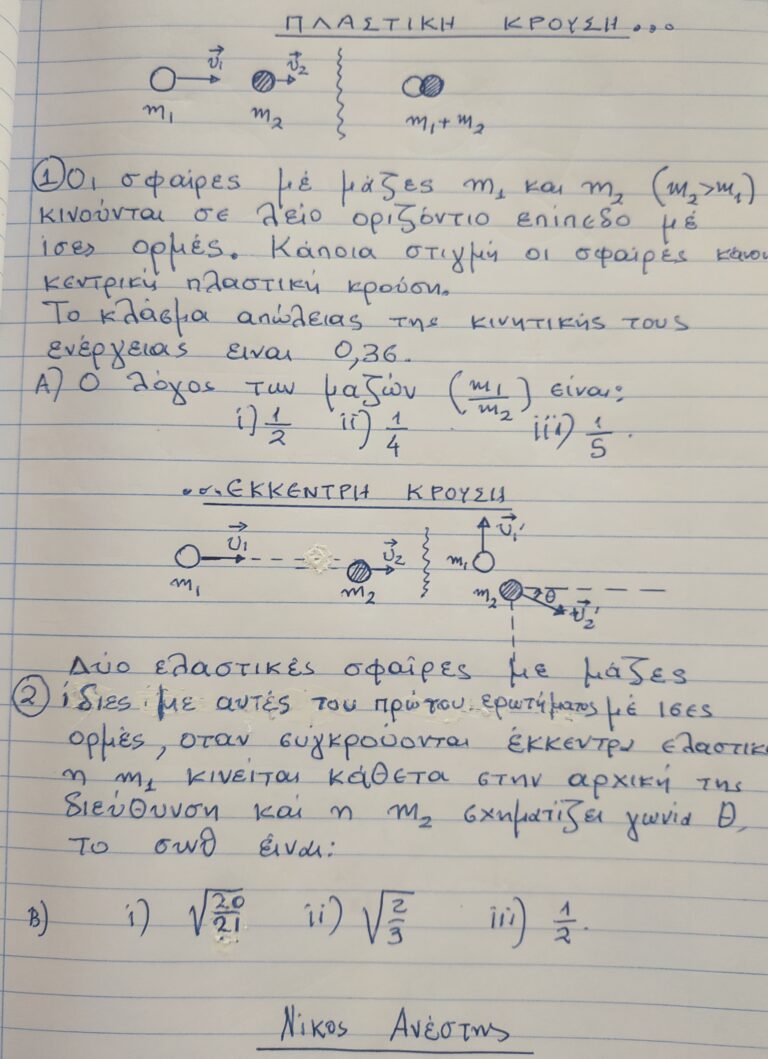 ΠΛΑΣΤΙΚΗ ΚΡΟΥΣΗ...
υ₁ υ₂
m₁ m₂ m₁+m₂
① Οι σφαίρες μέ μάζες m₁ και m₂ (m₂>m₁)
κινούνται σε λείο οριζόντιο επίπεδο μέ
ίσες ορμές. Κάποια στιγμή οι σφαίρες
κεντρική πλαστική κρούση.
Το κλάσμα απώλειας της κινητικής τους
ενέργειας ειναι 0,36.
Α) Ο λόγος των μαζών (m₁/m₂) είναι:
i) 1/2 ii) 1/4 iii) 1/5.
...ΕΚΚΕΝΤΡΗ ΚΡΟΥΣΗ
υ₁ υ₂ υ₁'
m₁ m₂ m₁
m₂ θ υ₂'
Δύο ελαστικές σφαίρες με μάζες
② ίδιες με αυτές του πρώτου ερωτήματος μέ ισες
ορμές, οταν συγκρούονται έκκεντρα ελαστικ
η m₁ κινείται κάθετα στην αρχική της
διεύθυνση και η m₂ σχηματίζει γωνία θ,
το συνθ είναι:
Β) i) √20/21 ii) √2/3 iii) 1/2.
Νίκος Ανέστης